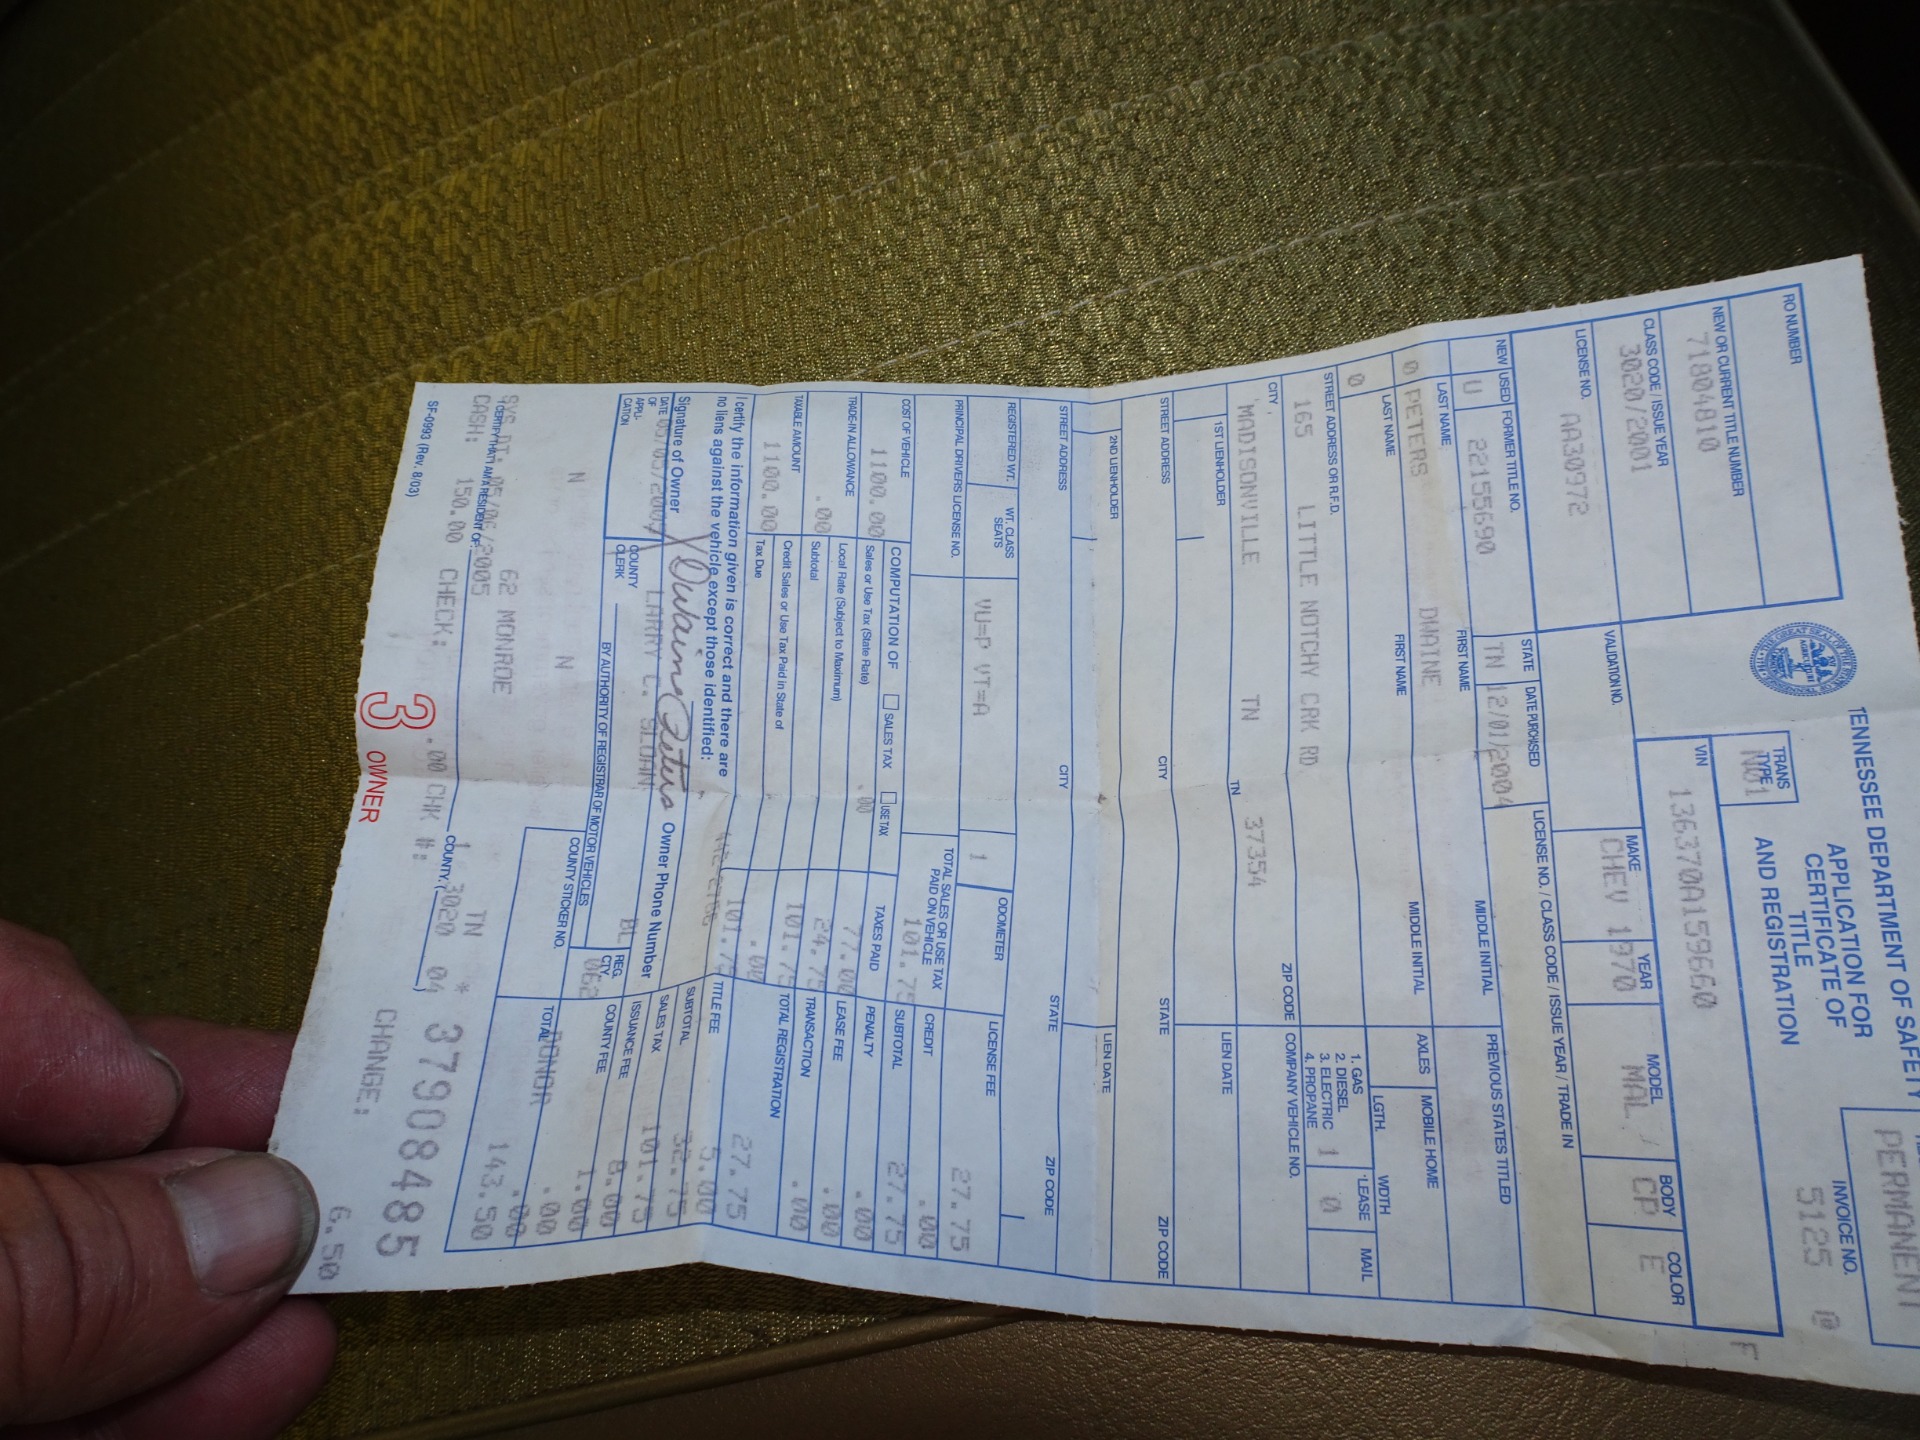 TENNESSEE DEPARTMENT OF SAFETY
APPLICATION FOR
CERTIFICATE OF
TITLE
AND REGISTRATION
PERMANENT
INVOICE NO.
5125 0
F
RO NUMBER
NEW OR CURRENT TITLE NUMBER
71804810
TRANS TYPE
N01
VIN
136370A159660
CLASS CODE / ISSUE YEAR
3020/2001
LICENSE NO. VALIDATION NO. MAKE YEAR MODEL BODY COLOR
AA30972 CHEV 1970 MAL CP E
NEW USED FORMER TITLE NO. STATE DATE PURCHASED LICENSE NO. / CLASS CODE / ISSUE YEAR / TRADE IN
U 22155690 TN 12/01/2004
LAST NAME FIRST NAME MIDDLE INITIAL PREVIOUS STATES TITLED
0 PETERS DWAINE
LAST NAME FIRST NAME MIDDLE INITIAL AXLES MOBILE HOME
0
LGTH. WDTH
STREET ADDRESS OR R.F.D.
165 LITTLE NOTCHY CRK RD
1. GAS
2. DIESEL
3. ELECTRIC
4. PROPANE 1
LEASE 0
MAIL
CITY TN ZIP CODE COMPANY VEHICLE NO.
MADISONVILLE TN 37354
1ST LIENHOLDER LIEN DATE
STREET ADDRESS CITY STATE ZIP CODE
2ND LIENHOLDER LIEN DATE
STREET ADDRESS CITY STATE ZIP CODE
REGISTERED WT. WT. CLASS SEATS ODOMETER LICENSE FEE
VU=P VT=A 1 27.75
PRINCIPAL DRIVERS LICENSE NO. TOTAL SALES OR USE TAX PAID ON VEHICLE CREDIT
101.75 .00
COST OF VEHICLE COMPUTATION OF SALES TAX USE TAX SUBTOTAL
1100.00 27.75
Sales or Use Tax (State Rate) .00 TAXES PAID PENALTY
77.00 .00
TRADE-IN ALLOWANCE Local Rate (Subject to Maximum) LEASE FEE
.00 24.75 .00
Subtotal TRANSACTION
101.75 .00
TAXABLE AMOUNT Credit Sales or Use Tax Paid in State of TOTAL REGISTRATION
1100.00 .00 27.75
Tax Due 101.75 TITLE FEE
5.00
I certify the information given is correct and there are
no liens against the vehicle except those identified:
SUBTOTAL
32.75
Signature of Owner X Dwaine Peters Owner Phone Number
SALES TAX
101.75
DATE OF APPLICATION COUNTY CLERK LARRY C. SLOAN BL
ISSUANCE FEE
8.00
BY AUTHORITY OF REGISTRAR OF MOTOR VEHICLES REG. CTY. 062
COUNTY FEE
1.00
N N COUNTY STICKER NO. DONOR
.00
.00
TOTAL 143.50
62 MONROE TN *
I CERTIFY THAT I AM A RESIDENT OF COUNTY.
SYS DT: 05/06/2005 1 3020 04 37908485
CASH: 150.00 CHECK: .00 CHK #: CHANGE: 6.50
SF-0993 (Rev. 8/03)
3 OWNER